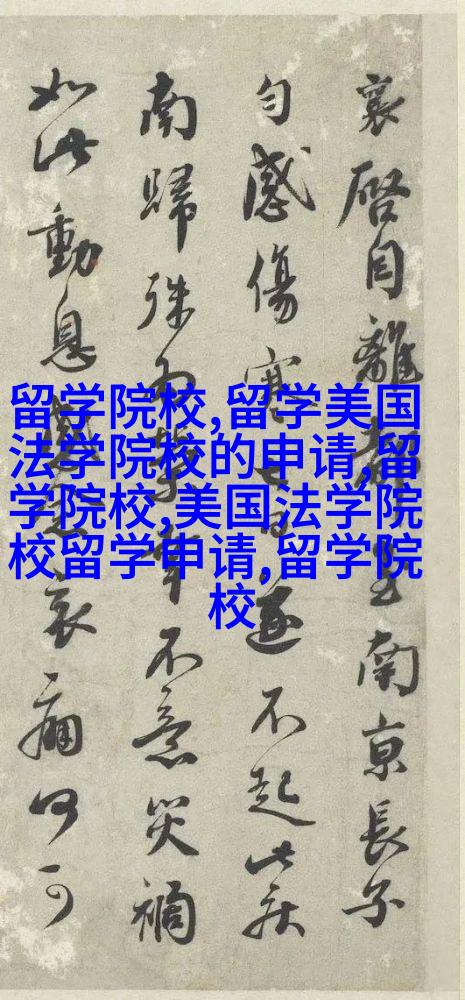 襄啓自離南京長子
匀感傷寒遂不起此疾
南歸殊幸不意災禍
如此動息哀痛何可
留学院校,留学美国
法学院校的申请,留
学院校,美国法学院
校留学申请,留学院
校